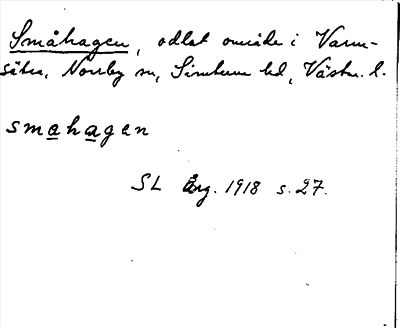 Småhagen, odlat område i Varm-
sätra, Norrby sn, Simtuna hd, Västm. l.
smahagen
SL Årg. 1918 s. 27.